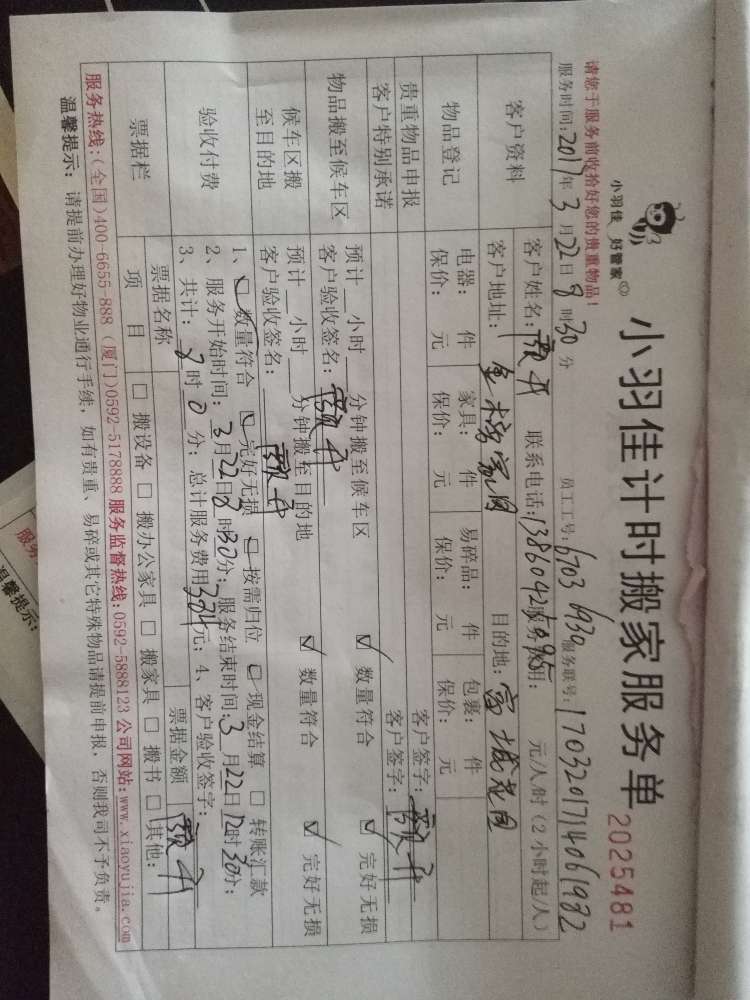 小羽佳 好管家
小羽佳计时搬家服务单
2025481
请您于服务前收拾好您的贵重物品！
服务时间:2017年 3月 22日 8时 30分 员工工号:6703 6930 服务联号:170320171406 1982
客户资料 客户姓名: 联系电话: 服务费用: 元/人/时(2小时起/人)
客户地址: 家园 目的地: 富城花园
物品登记 电器: 件 家具: 件 易碎品: 件 包裹: 件
保价: 元 保价: 元 保价: 元 保价: 元
贵重物品申报 客户签字:
客户特别承诺 客户签字:
物品搬至候车区 预计 小时 分钟搬至候车区 ☑ 数量符合 ☑ 完好无损
客户验收签名:
候车区搬至目的地 预计 小时 分钟搬至目的地 ☑ 数量符合 ☑ 完好无损
客户验收签名:
验收付费 1、☑ 数量符合 ☑ 完好无损 ☑ 按需归位 ☑ 现金结算 □ 转账汇款
2、服务开始时间: 3月22日8时30分; 服务结束时间:3月22日12时30分;
3、共计: 时0分; 总计服务费用304元; 4、客户验收签字:
票据栏 票据名称 票据金额
项目 □ 搬设备 □ 搬办公家具 □ 搬家具 □ 搬书 □ 其他:
服务热线:(全国)400-6655-888 (厦门)0592-5178888 服务监督热线:0592-5888123 公司网站:www.xiaoyujia.com
温馨提示: 请提前办理好物业通行手续，如有贵重、易碎或其它特殊物品请提前申报，否则我司不予负责。
服务
温馨提示: